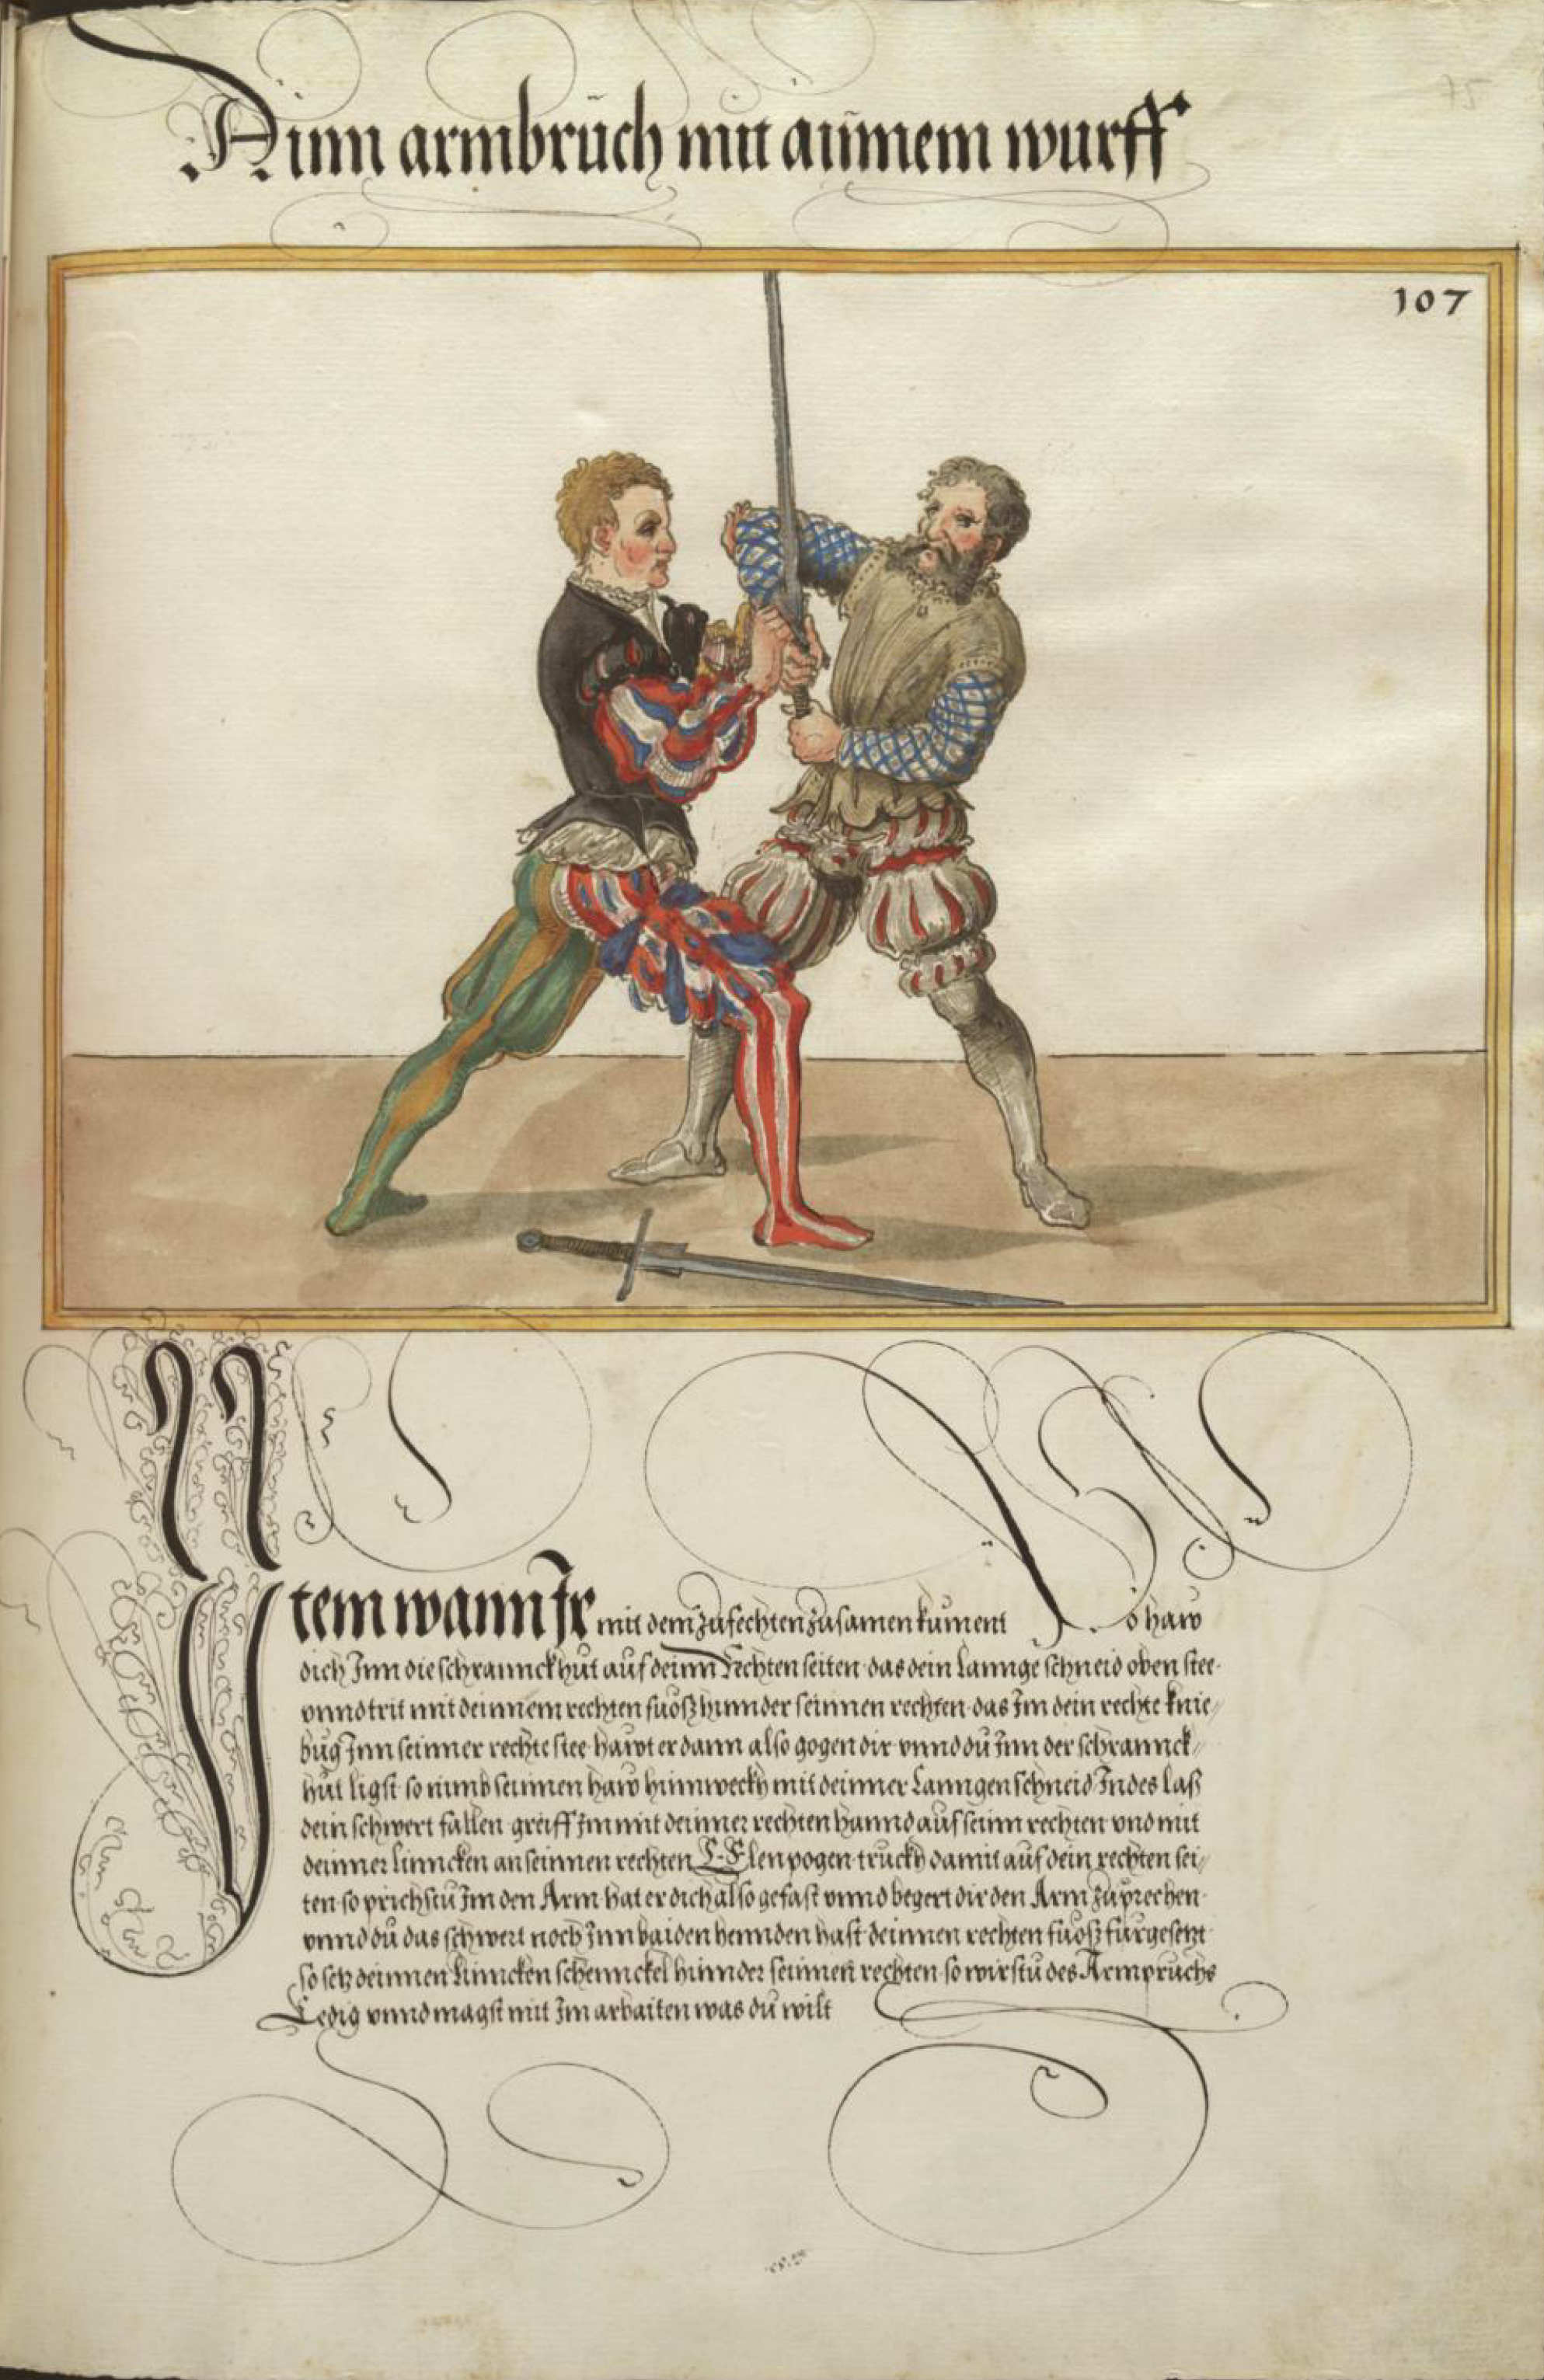 Ainn armbrüch mit ainnem wurff
75
107
Item wann Ir mit dem zůfechten zůsamen kument So haw
dich Inn die schrannckhůt auf deinn Rechten seiten das dein Lannge schneid oben stee
vnnd trit mit deinnem rechten fůosz hinnder seinnen rechten das Im dein rechte knie/
bug Inn seinner rechte stee hawt er dann also gogen dir vnnd dů Inn der schrannck/
hůt ligst so nimb seinnen haw hinnweckh mit deinner Lanngen schneid In des laß
dein schwert fallen greiff Im mit deinner rechten hannd auf seinn rechten vnd mit
deinner linncken an seinnen rechten Elenpogen truckh damit auf dein rechten sei/
ten so prichstů Im den Arm hat er dich also gefast vnnd begert dir den Arm zů prechen
vnnd dů das schwert noch Inn baiden hennden hast deinnen rechten fůosz fürgesetzt
so setz deinnen Linncken schennckel hinnder seinnen rechten so wirstů des Armpruchs
Ledig vnnd magst mit Im arbaiten was dů wilt